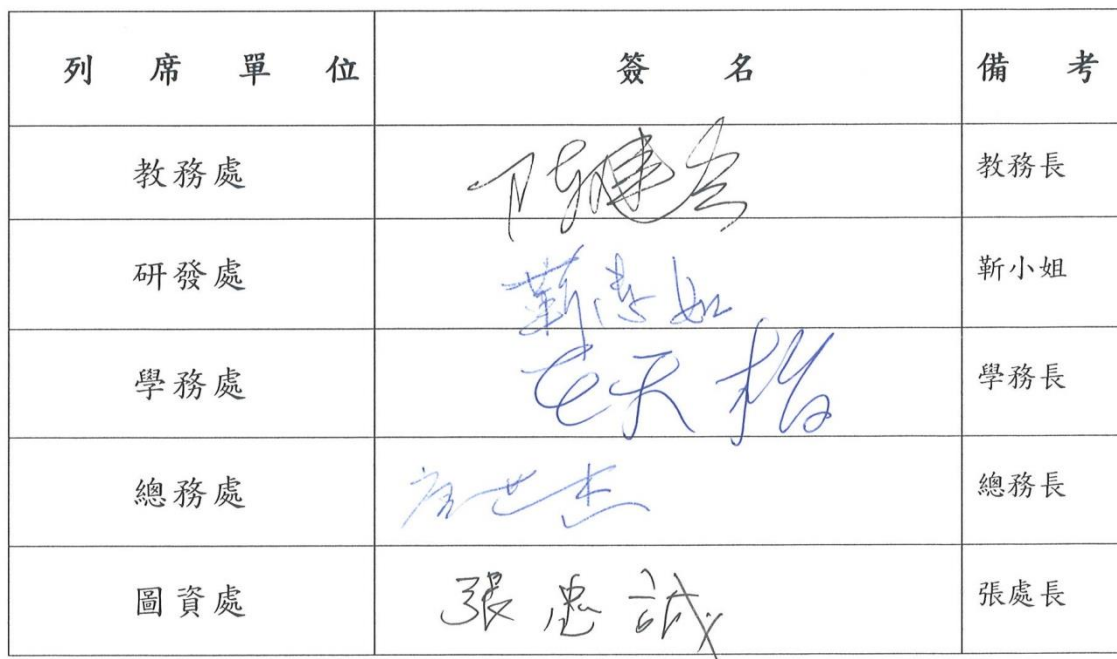 列席單位 簽名 備考
教務處 陳建宏 教務長
研發處 靳 如 靳小姐
學務處 天 學務長
總務處 唐世杰 總務長
圖資處 張忠誠 張處長